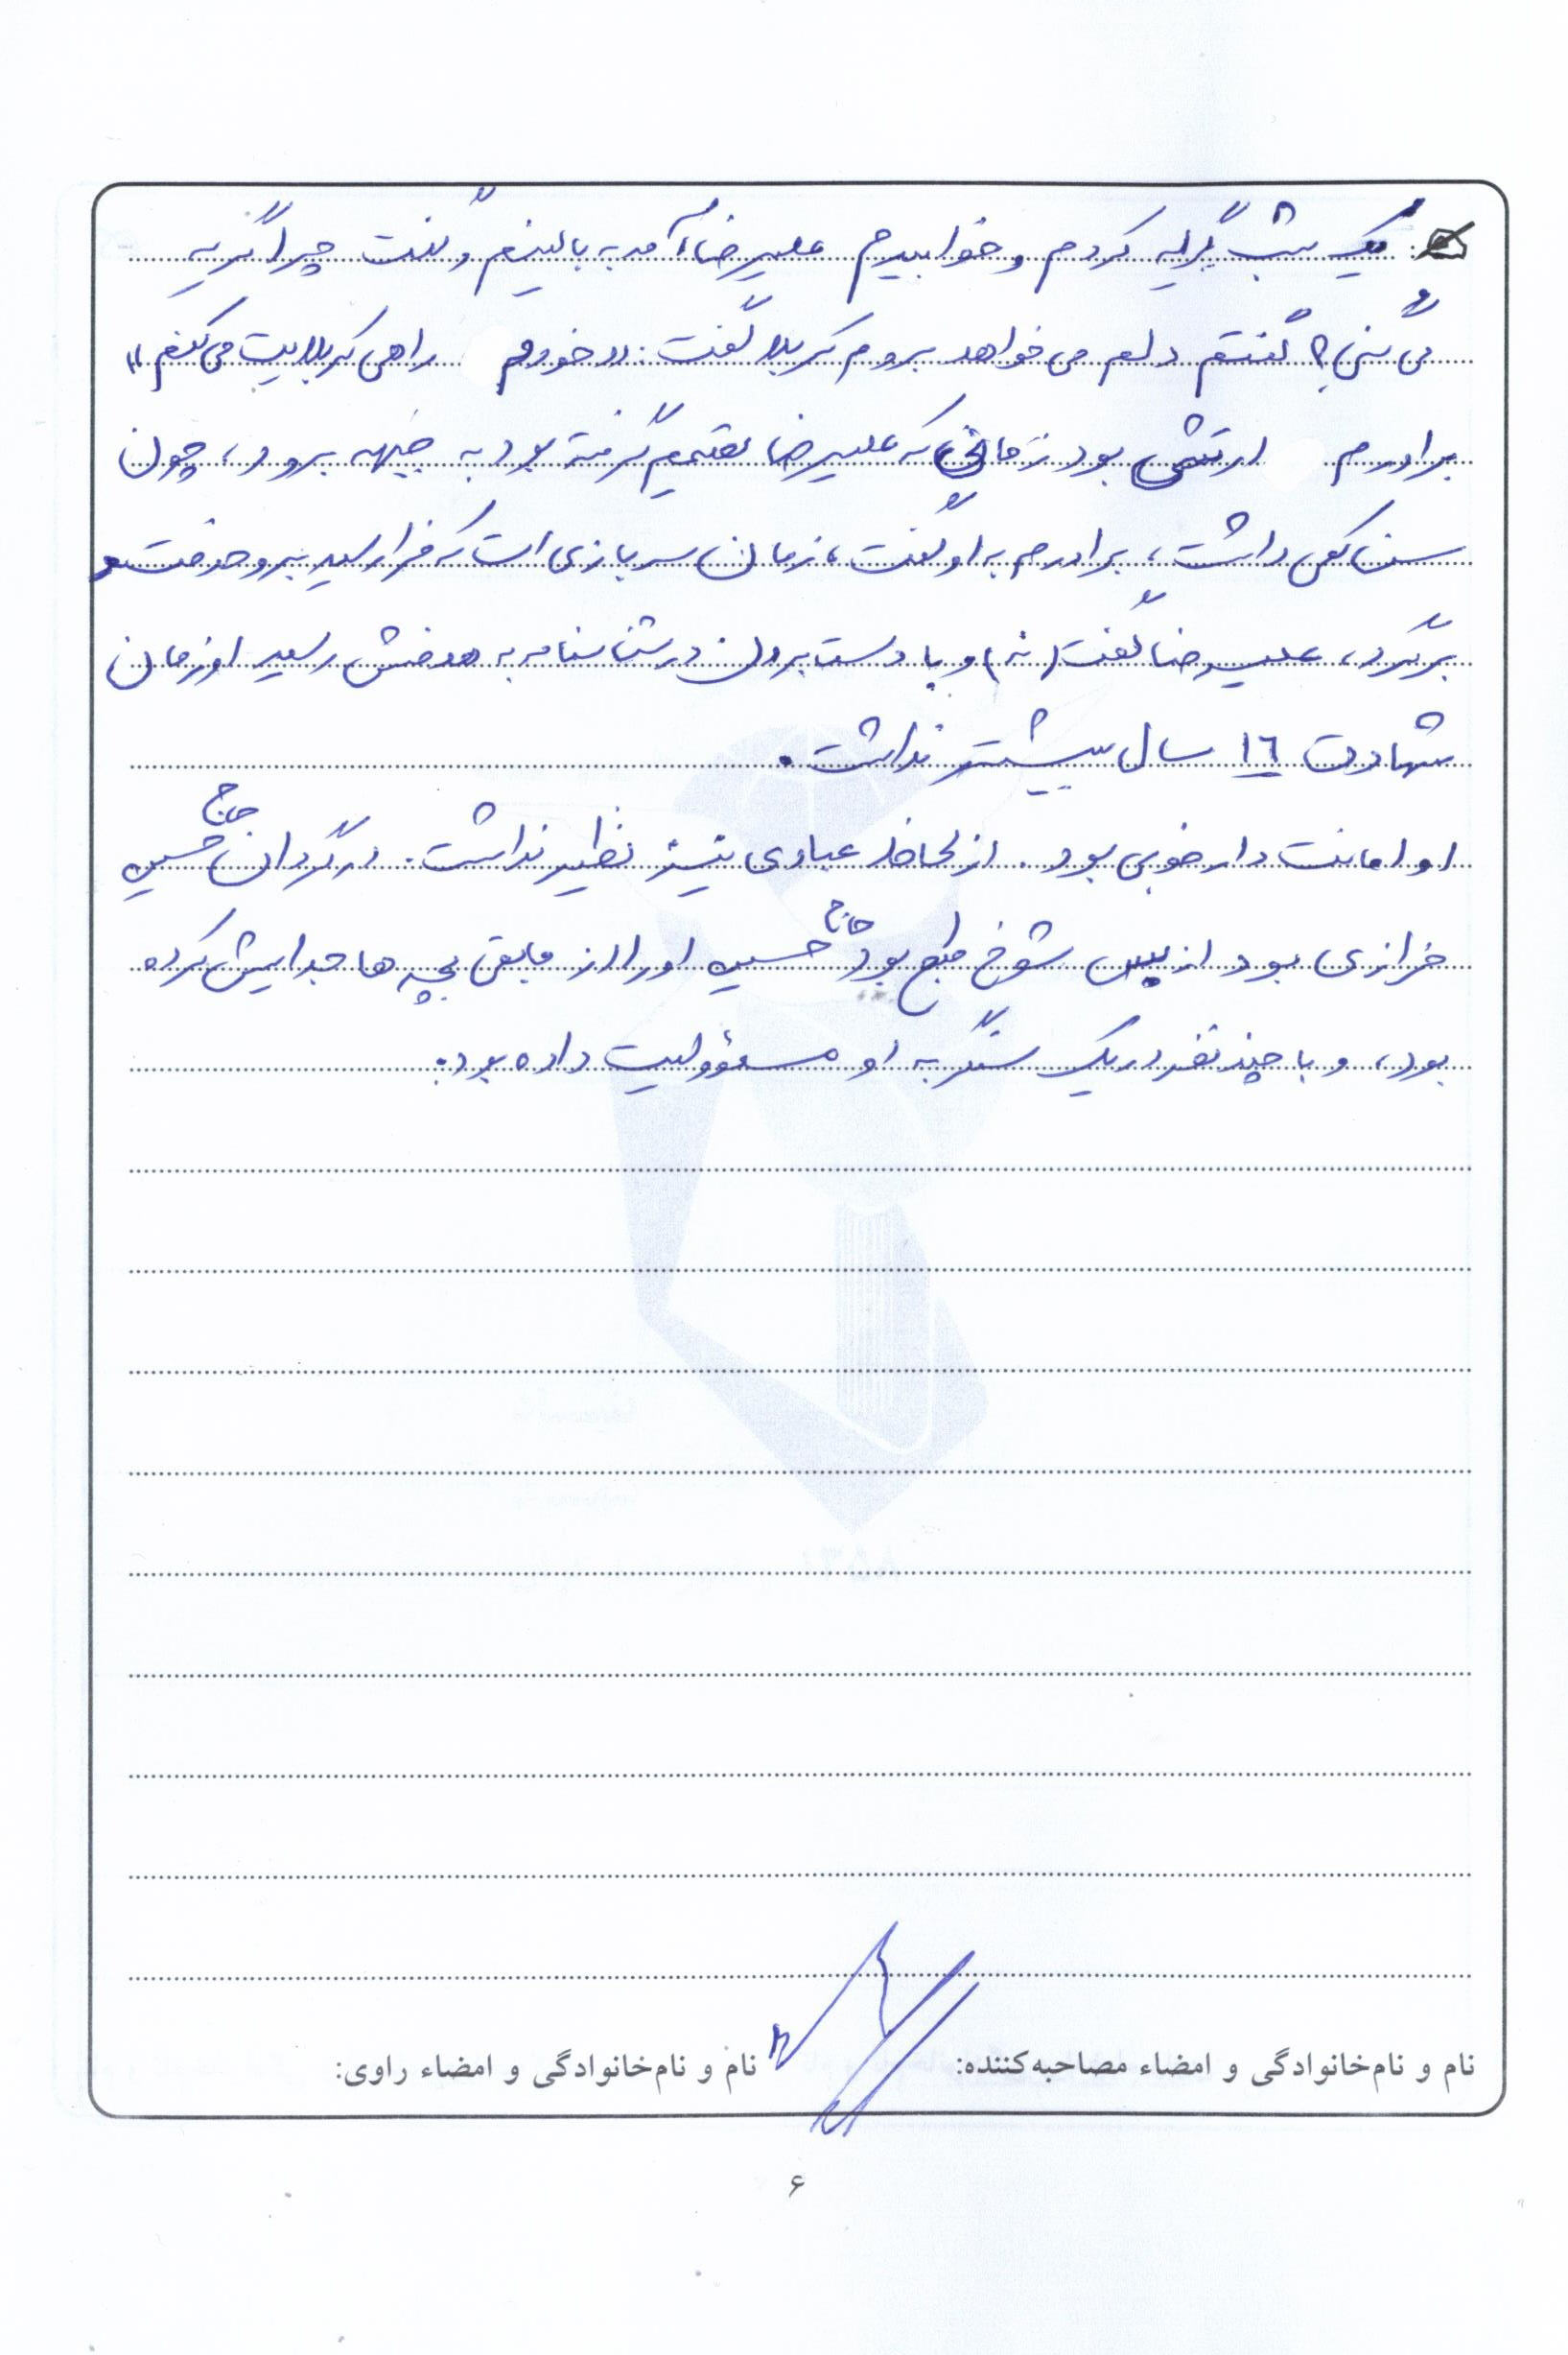 یک شب گریه کردم و خوابیدم علیرضا آمد به بالینم و گفت چرا گریه
می کنی؟ گفتم دلم می خواهد بروم کربلا گفت: «خودم راهی کربلایت می کنم»
برادرم ارتشی بود زمانی که علیرضا تصمیم گرفته بود به جبهه برود، چون
سن کمی داشت، برادرم به او گفت، زمان سربازی است که فرا رسید برو خدمت و
برگرد، علیرضا گفت (نه) و با دست بردن در شناسنامه به هدفش رسید او زمان
شهادت ۱۶ سال بیشتر نداشت.
او امانت دار خوبی بود. از لحاظ عبادی نیز نظیر نداشت. در گردان حاج حسین
خرازی بود از بس شوخ طبع بود حاج حسین او را از مابقی بچه ها جدایش کرده
بود، و با چند نفر در یک سنگر به او مسئوولیت داده بود.
نام و نام‌خانوادگی و امضاء مصاحبه‌کننده: نام و نام‌خانوادگی و امضاء راوی:
۶